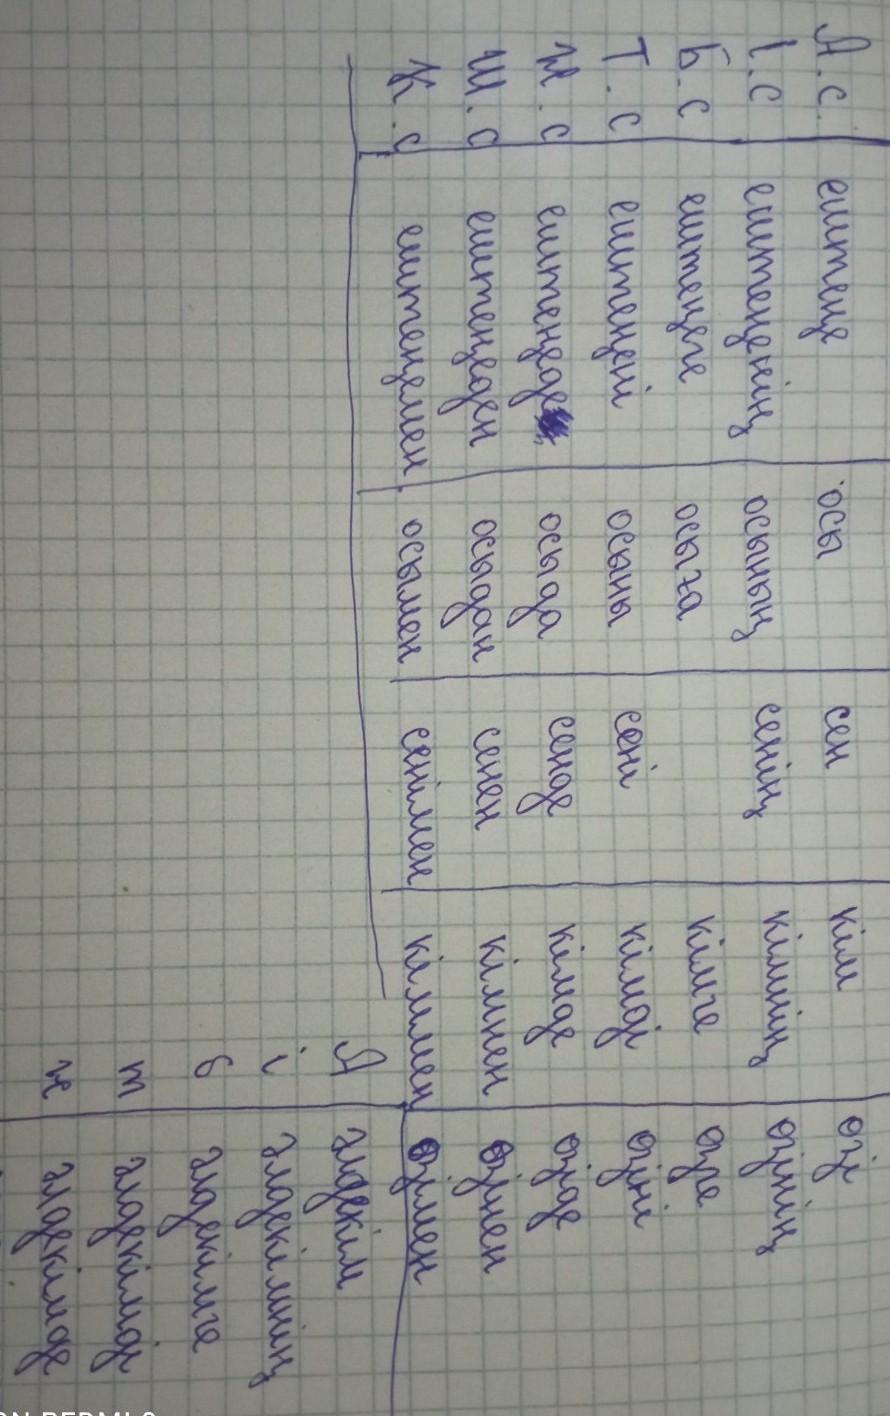 А.с. ештеңе осы сен кім өзі
І.с ештеңенің осының сенің кімнің өзінің
Б.с ештеңеге осыға кімге өзге
Т.с ештеңені осыны сені кімді өзіні
Ж.с ештеңеде осыда сенде кімде өзіде
Ш.с ештеңеден осыдан сенен кімнен өзінен
К.с ештеңемен осымен сенімен кіммен өзімен
А әлдекім
і әлдекімнің
б әлдекімге
т әлдекімді
ж әлдекімде